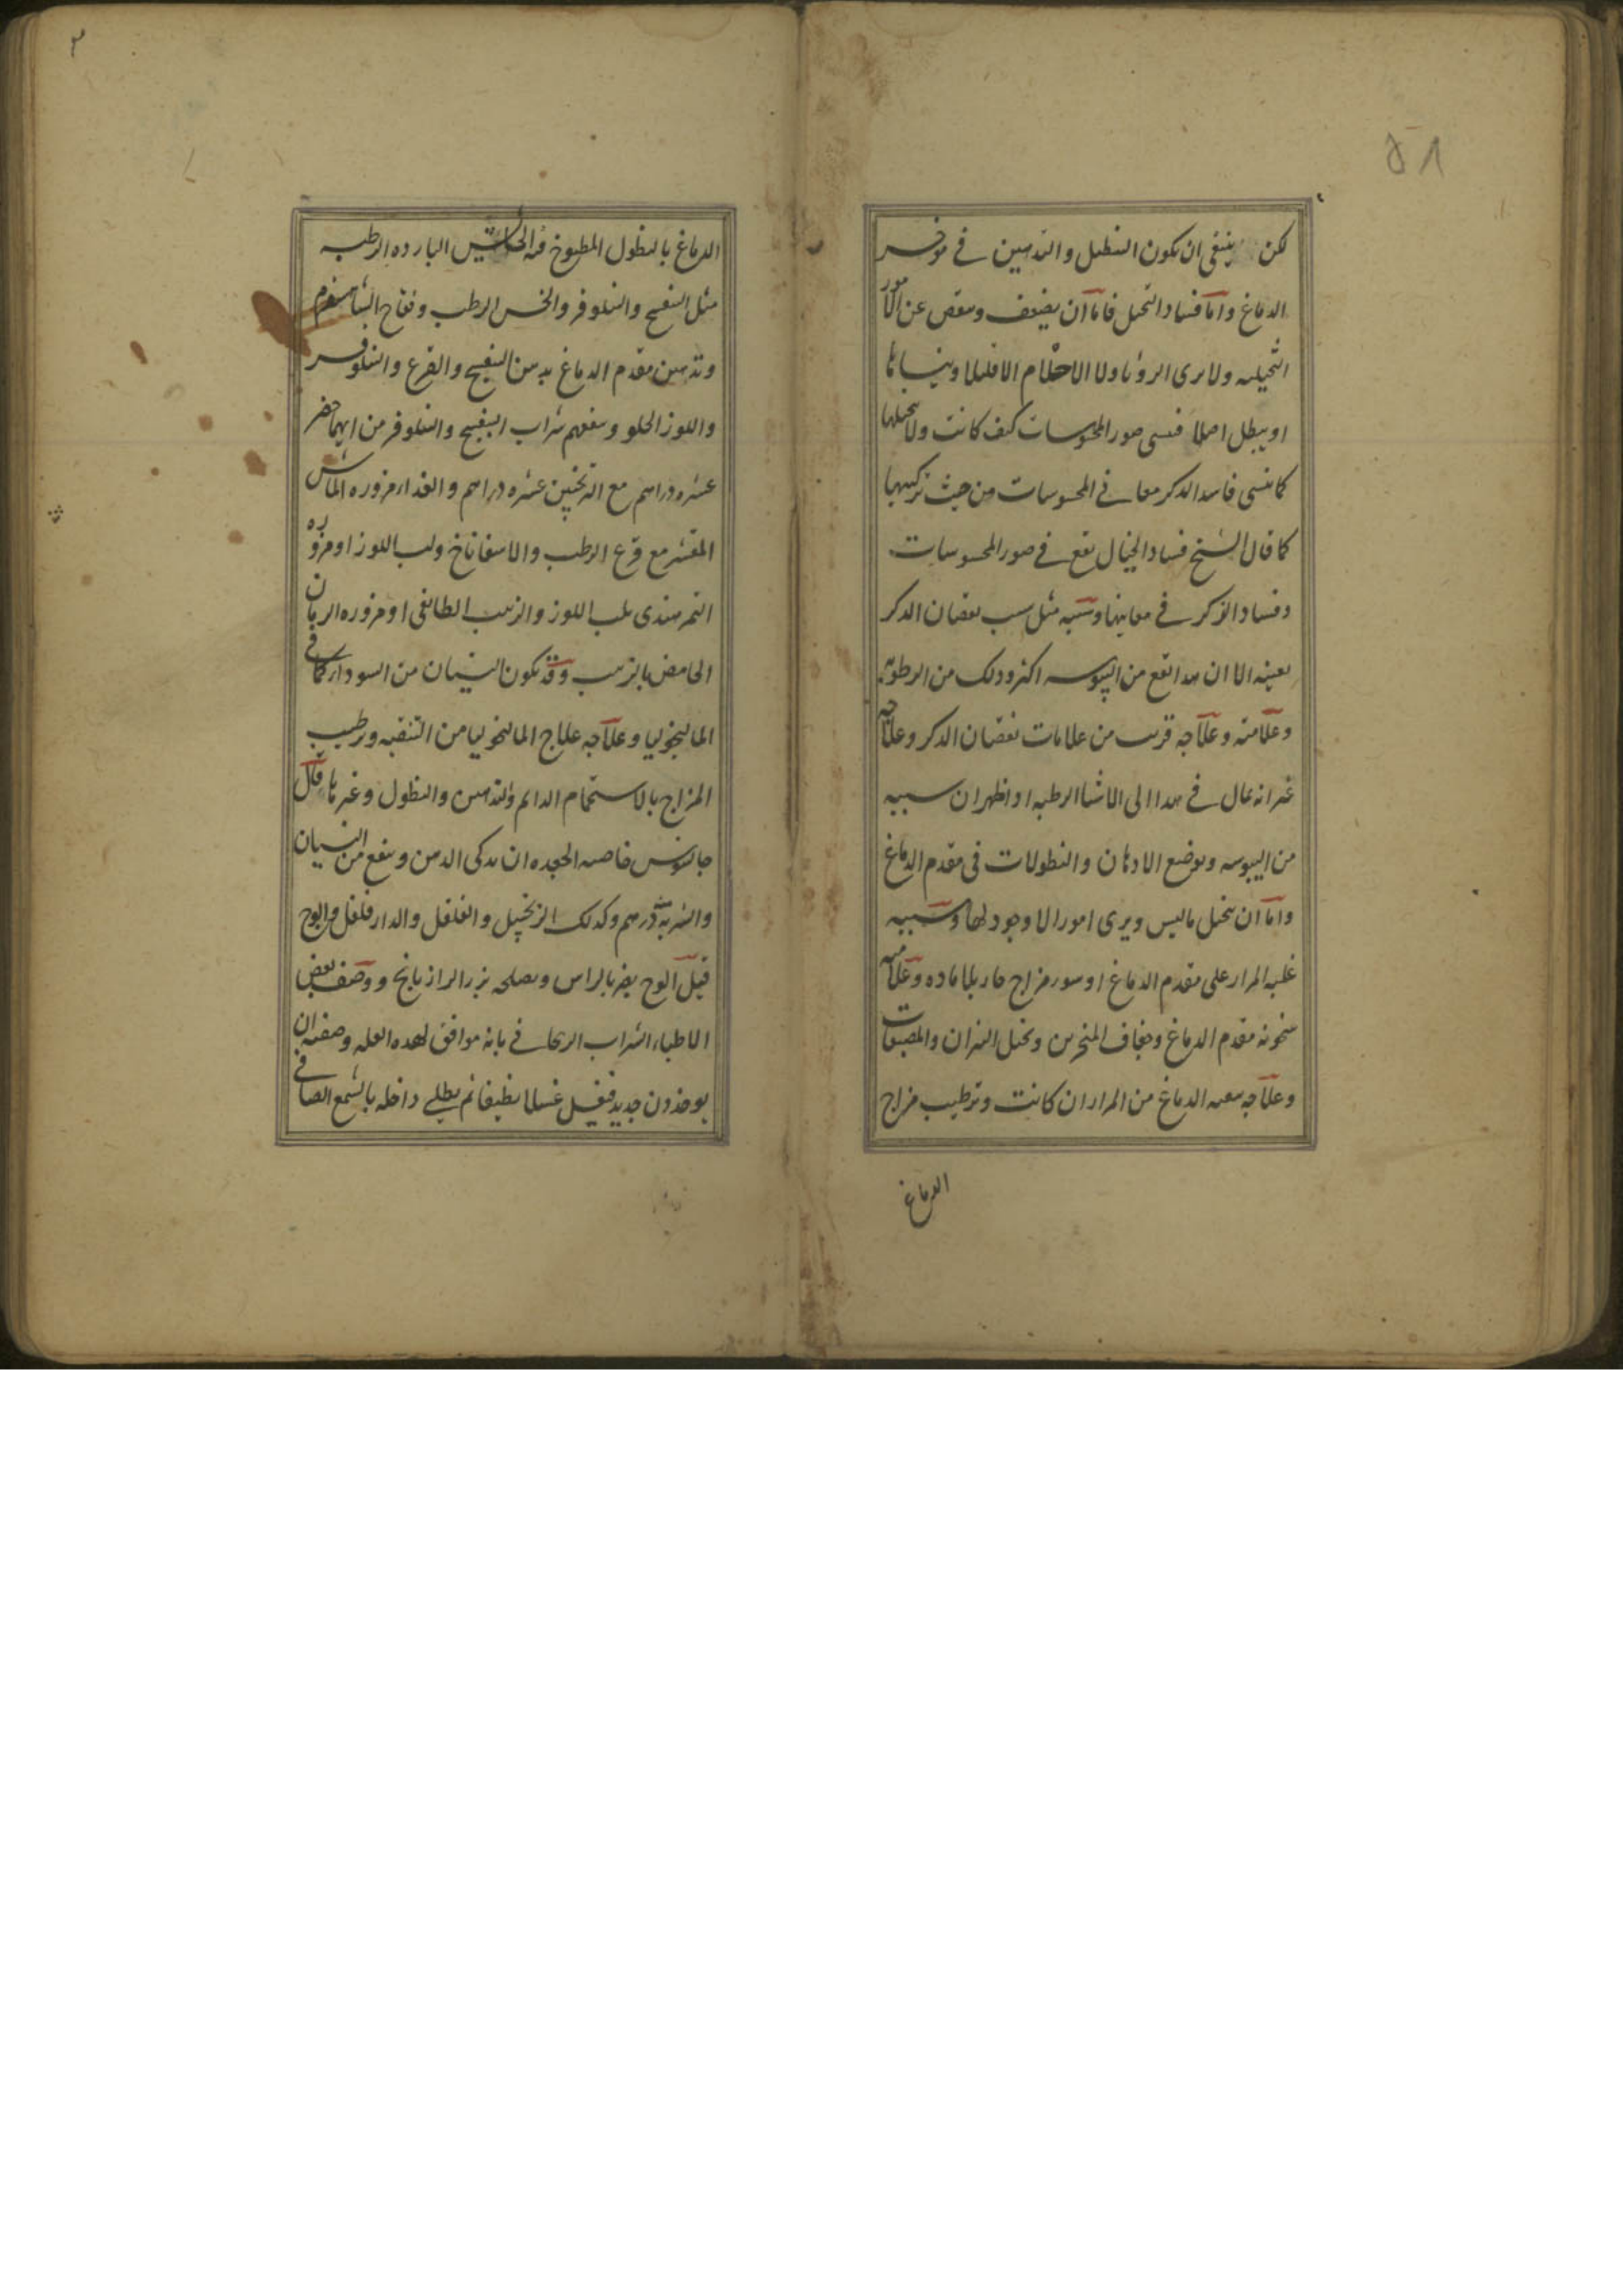 ٥٨
لكن ينبغى ان يكون التنطيل والتدهين فى موخر
الدماغ واما فساد التخيل فاما ان يضعف وينقص عن الامور
التخيليه ولا يرى الرؤيا ولا الاحلام الا قليلا وينساها
او يبطل اصلا فينسى صور المحسوسات كيف كانت ولا يتخيلها
كما ينسى فاسد الذكر معانى المحسوسات من حيث تركيبها
كما قال الشيخ فساد الخيال يقع فى صور المحسوسات
وفساد الذكر فى معانيها وسببه مثل سبب نقصان الذكر
بعينه الا ان هذا يقع من اليبوسه اكثر وذلك من الرطوبه
وعلامته وعلاجه قريب من علامات نقصان الذكر وعلاجه
غير انه يمال فى هذا الى الاشيا الرطبه اذ اظهر ان سببه
من اليبوسه ويوضع الادهان والنطولات فى مقدم الدماغ
واما ان يتخيل ماليس ويرى امورا لا وجود لها وسببه
غلبه المرار على مقدم الدماغ او سوء مزاج حار بلا ماده وعلامته
سخونه مقدم الدماغ وجفاف المنخرين وتخيل النيران والمصبغات
وعلاجه تنقيه الدماغ من المرار ان كانت وترطيب مزاج
الدماغ
الدماغ بالنطول المطبوخ فيه الحشايش البارده الرطبه
مثل البنفسج والنيلوفر والخس الرطب وفقاح الشاهسفرم
وتدهين مقدم الدماغ بدهن البنفسج والقرع والنيلوفر
واللوز الحلو وينفعهم شراب البنفسج والنيلوفر من ايهما حضر
عشره دراهم مع الترنجبين عشره دراهم والغداء مزوره الماش
المقشر مع قرع الرطب والاسفاناخ ولب اللوز او مزوره
التمر هندى بلب اللوز والزبيب الطائفى او مزوره الرمان
الحامض بالزبيب وقد يكون النسيان من السوداء كما فى
الماليخوليا وعلاجه علاج الماليخوليا من التنقيه وترطيب
المزاج بالاستحمام الدائم والتدهين والنطول وغيرها قال
جالينوس خاصيه الجعده ان يذكى الذهن وينفع من النسيان
والشربه درهم وكذلك الزنجبيل والفلفل والدارفلفل والوج
قيل الوج يضر بالراس ويصلحه بزر الرازيانج ووصف بعض
الاطباء الشراب الريحانى بانه موافق لهذه العله وصفته ان
يوخذ دن جديد فيغسل غسلا نظيفا ثم يطلى داخله بالشمع الصافى